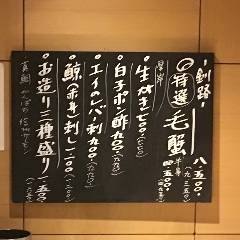 -釧路-
◎特選 毛蟹
八.五〇〇
(九三五〇)
半身 四.五〇〇
厚岸
生がき七〇〇
白子ポン酢九〇〇
エイのレバー刺九〇〇
鯨(赤身)刺し一.一〇〇
お造り三種盛り一.五〇〇
真鯛